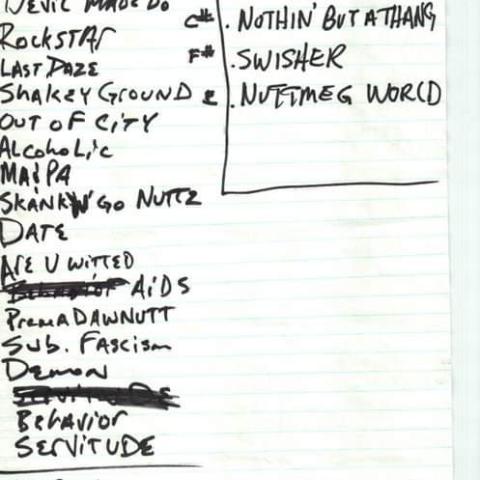 DEVIL MADE DO
ROCKSTAR
LAST DAZE
SHAKEY GROUND
OUT OF CITY
ALCOHOLIC
SKANK N' GO NUTTZ
DATE
ARE U WITTED
Behavior AIDS
PremADAWNUTT
SUB. FASCISM
DEMON
SERVITUDE
BEHAVIOR
SERVITUDE
C# . NOTHIN' BUT A THANG
F# . SWISHER
E . NUTTMEG WORLD